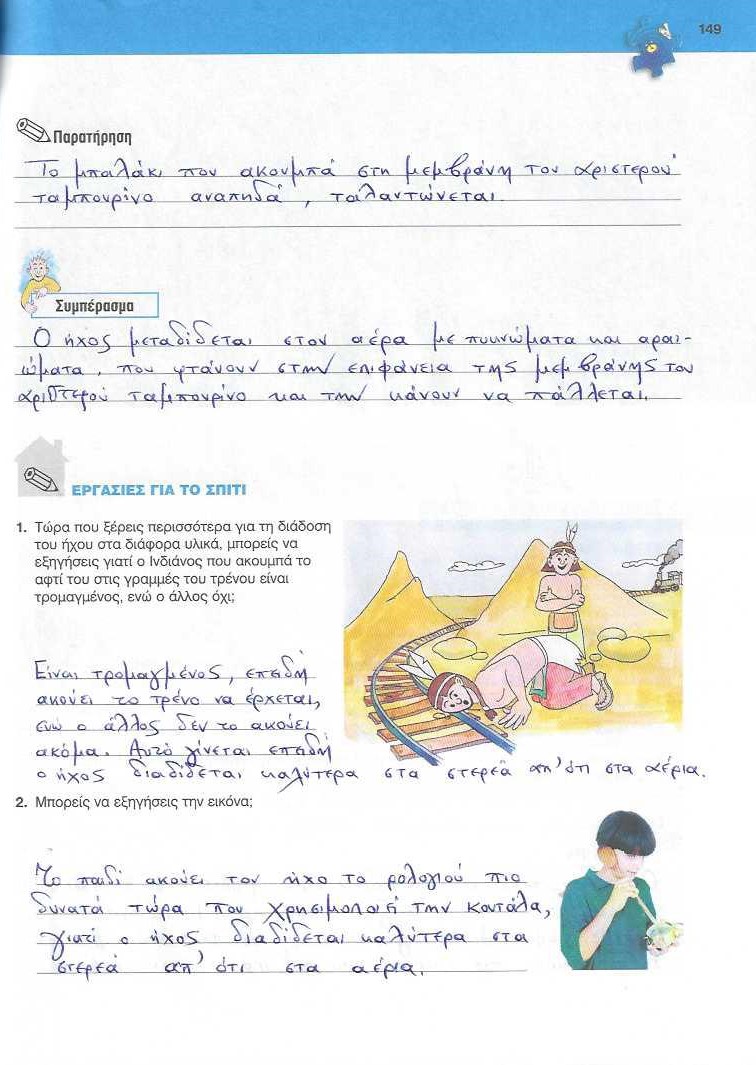 149
Παρατήρηση
Το μπαλάκι που ακουμπά στη μεμβράνη του αριστερού
ταμπουρίνο αναπηδά, ταλαντώνεται.
Συμπέρασμα
Ο ήχος μεταδίδεται στον αέρα με πυκνώματα και αραι-
ώματα, που φτάνουν στην επιφάνεια της μεμβράνης του
αριστερού ταμπουρίνο και την κάνουν να πάλλεται.
ΕΡΓΑΣΙΕΣ ΓΙΑ ΤΟ ΣΠΙΤΙ
1. Τώρα που ξέρεις περισσότερα για τη διάδοση
του ήχου στα διάφορα υλικά, μπορείς να
εξηγήσεις γιατί ο Ινδιάνος που ακουμπά το
αφτί του στις γραμμές του τρένου είναι
τρομαγμένος, ενώ ο άλλος όχι;
Είναι τρομαγμένος, επειδή
ακούει το τρένο να έρχεται,
ενώ ο άλλος δεν το ακούει
ακόμα. Αυτό γίνεται επειδή
ο ήχος διαδίδεται καλύτερα στα στερεά απ' ότι στα αέρια.
2. Μπορείς να εξηγήσεις την εικόνα;
Το παιδί ακούει τον ήχο το ρολογιού πιο
δυνατά τώρα που χρησιμοποιεί την κουτάλα,
γιατί ο ήχος διαδίδεται καλύτερα στα
στερεά απ' ότι στα αέρια.